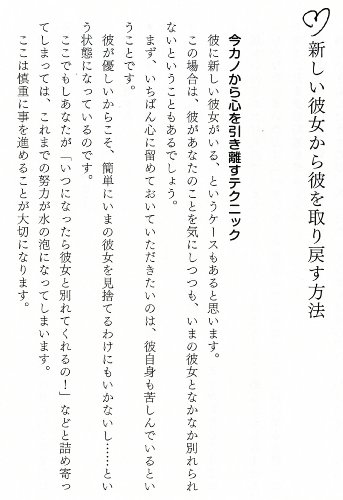 新しい彼女から彼を取り戻す方法
今カノから心を引き離すテクニック
彼に新しい彼女がいる、というケースもあると思います。
この場合は、彼があなたのことを気にしつつも、いまの彼女となかなか別れられ
ないということもあるでしょう。
まず、いちばん心に留めておいていただきたいのは、彼自身も苦しんでいるとい
うことです。
彼が優しいからこそ、簡単にいまの彼女を見捨てるわけにもいかないし……とい
う状態になっているのです。
ここでもしあなたが「いつになったら彼女と別れてくれるの！」などと詰め寄っ
てしまっては、これまでの努力が水の泡になってしまいます。
ここは慎重に事を進めることが大切になります。